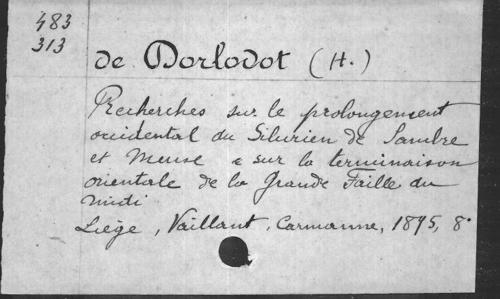 483
313
de Dorlodot (H.)
Recherches sur le prolongement
occidental du Silurien de Sambre
et Meuse & sur la terminaison
orientale de la Grande Faille du
midi
Liège, Vaillant, Carmanne, 1895, 8°